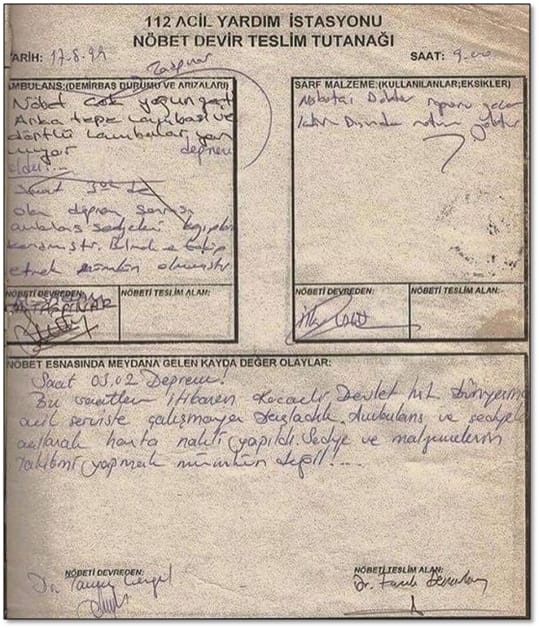 112 ACİL YARDIM İSTASYONU
NÖBET DEVİR TESLİM TUTANAĞI
TARİH: 17-8-99 SAAT: 9.00
AMBULANS:(DEMİRBAŞ DURUMU VE ARIZALARI)
Nöbet çok yoğun geçti
Arka tepe lambası ve
dörtlü lambalar yan
mıyor deprem
oldu...
Saat 3
olan deprem sonrası
ambulans sedyeleri kayıplara
karışmıştır. Bulmak ve takip
etmek mümkün olmamıştır
NÖBETİ DEVREDEN: NÖBETİ TESLİM ALAN:
SARF MALZEME:(KULLANILANLAR;EKSİKLER)
Nöbetçi Doktor raporu
NÖBETİ DEVREDEN: NÖBETİ TESLİM ALAN:
NÖBET ESNASINDA MEYDANA GELEN KAYDA DEĞER OLAYLAR:
Saat 03.02 Deprem!
Bu saatten itibaren Kocaeli Devlet
acil serviste çalışmaya başladık. Ambulans ve sedyeler
hasta nakli yapıldı. Sedye ve malzemelerin
takibini yapmak mümkün değil!...
NÖBETİ DEVREDEN: NÖBETİ TESLİM ALAN:
Dr. Dr.